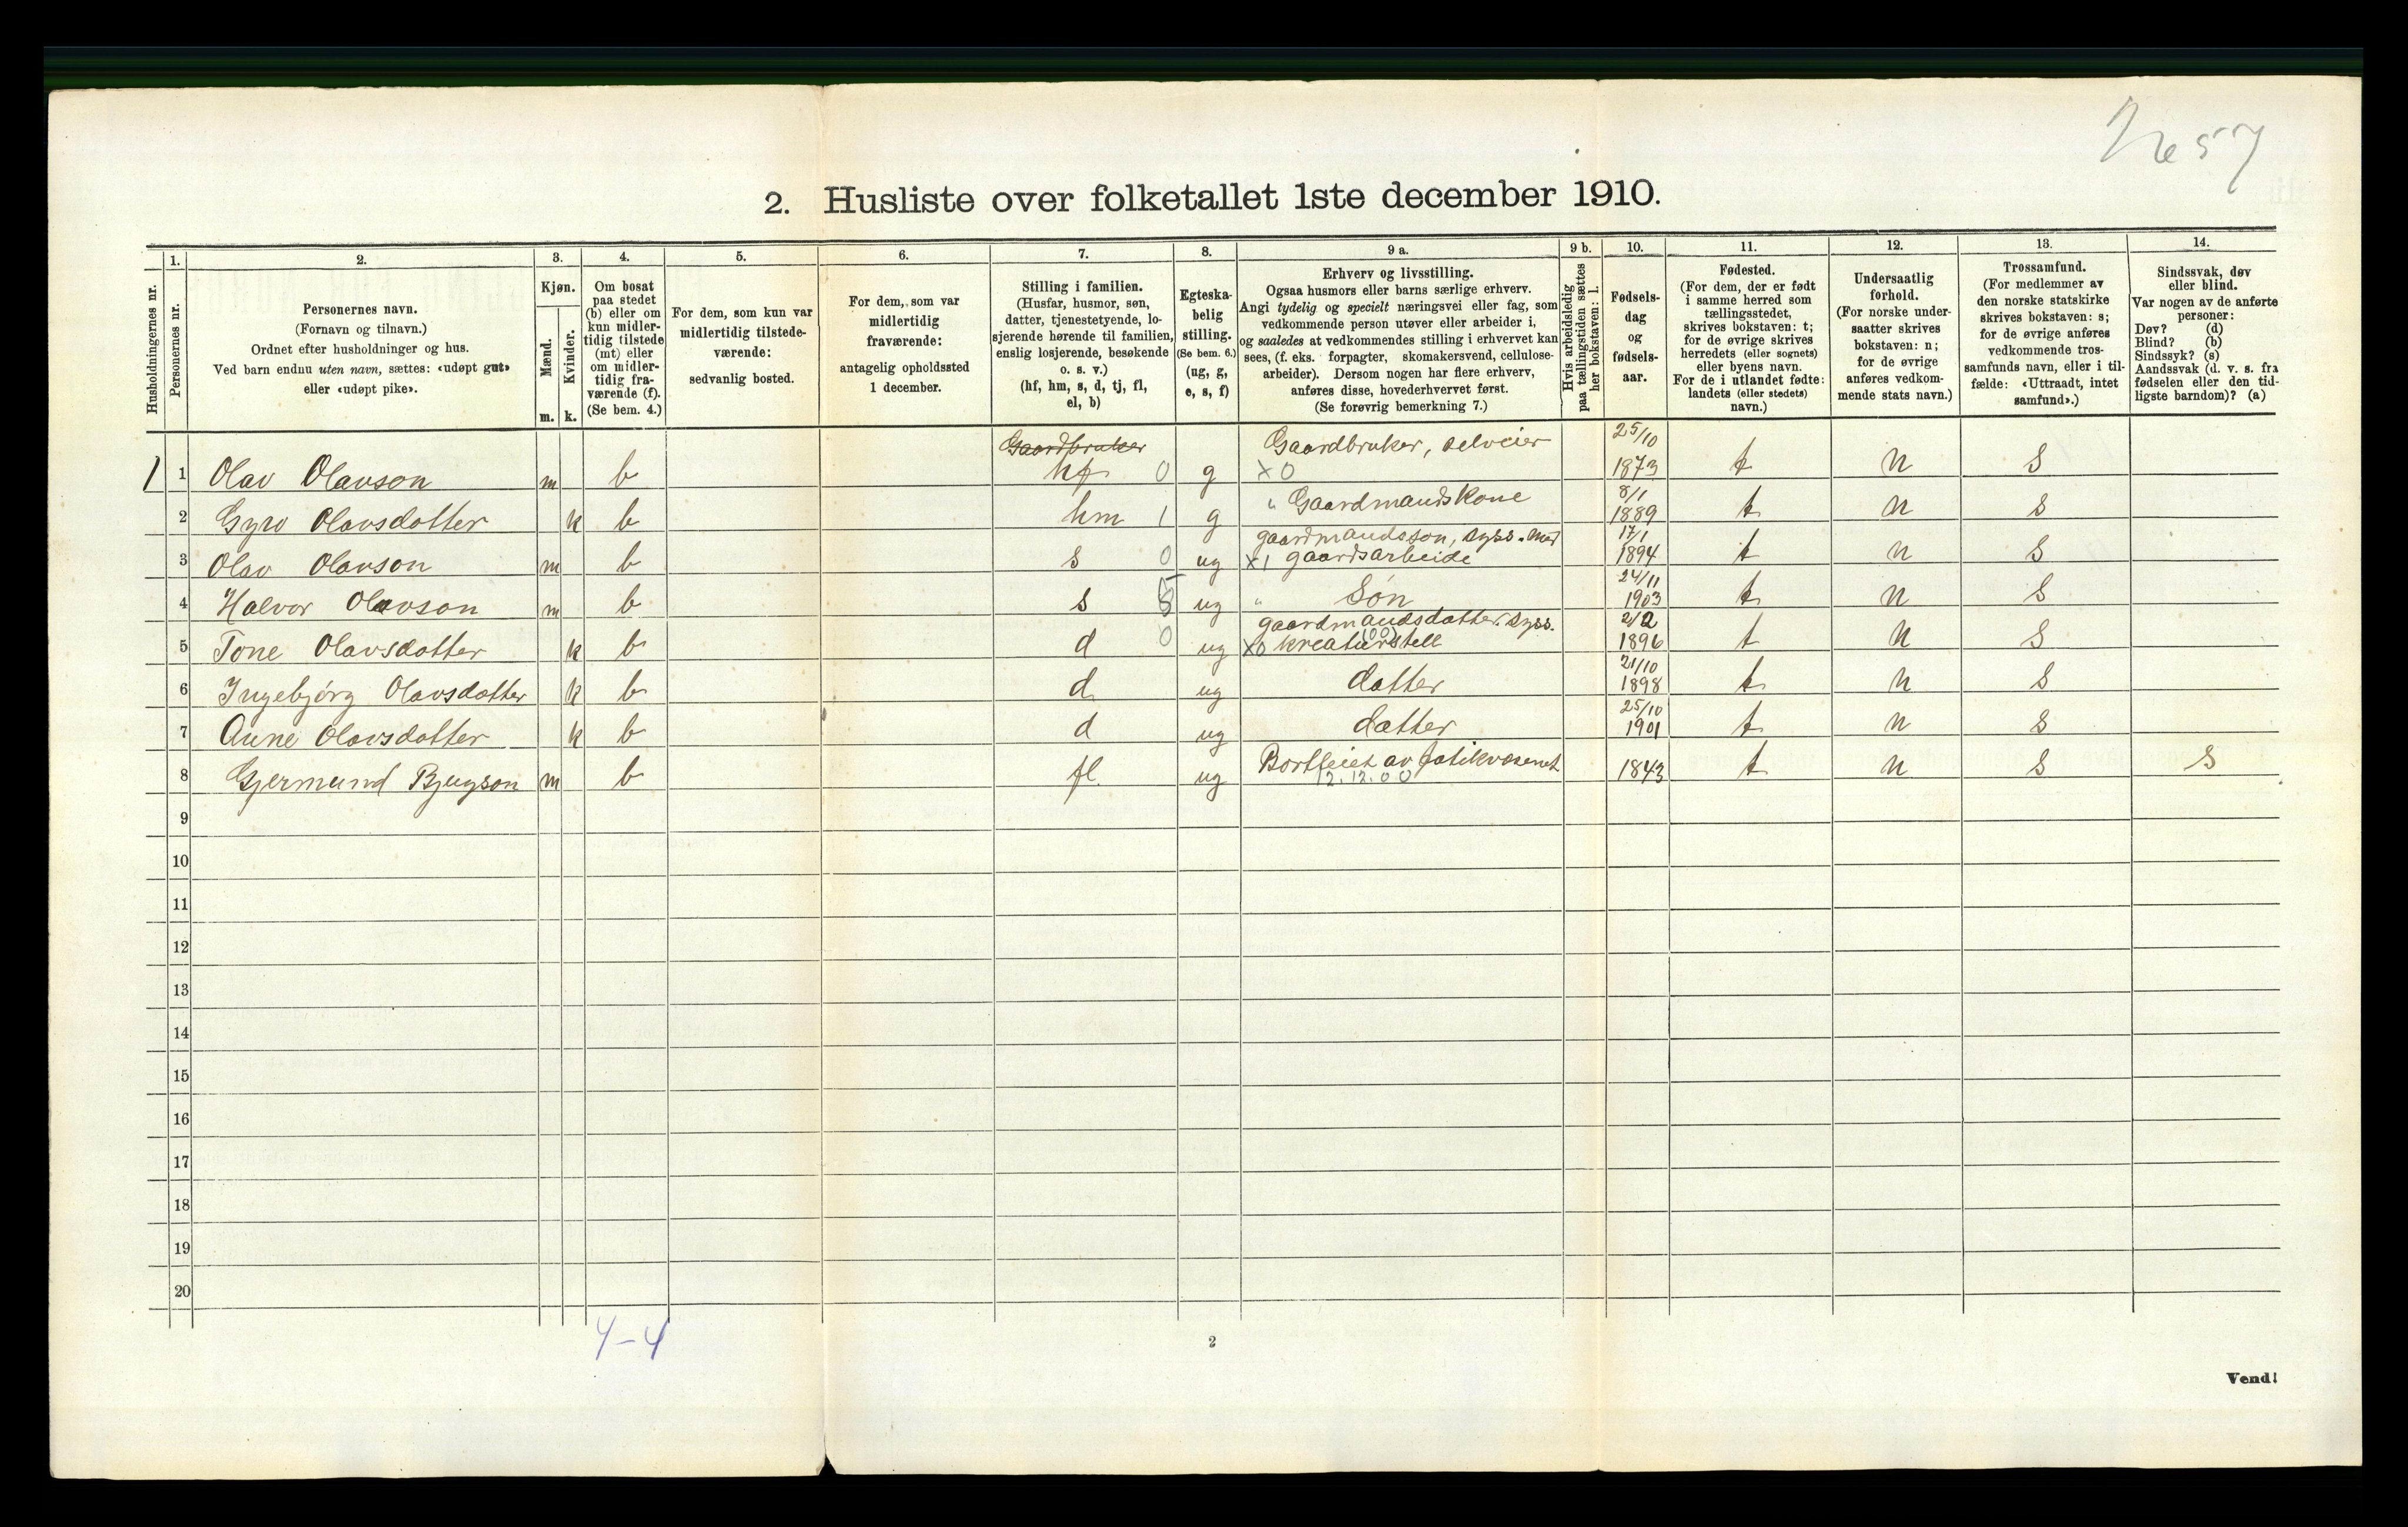 No 57
2. Husliste over folketallet 1ste december 1910.
Husholdningernes nr.
1.
Personernes nr.
2.
Personernes navn.
(Fornavn og tilnavn.)
Ordnet efter husholdninger og hus.
Ved barn endnu uten navn, sættes: «udøpt gut»
eller «udøpt pike».
3.
Kjøn.
Mænd.
Kvinder.
m. k.
4.
Om bosat
paa stedet
(b) eller om
kun midler-
tidig tilstede
(mt) eller
om midler-
tidig fra-
værende (f).
(Se bem. 4.)
5.
For dem, som kun var
midlertidig tilstede-
værende:
sedvanlig bosted.
6.
For dem, som var
midlertidig
fraværende:
antagelig opholdssted
1 december.
7.
Stilling i familien.
(Husfar, husmor, søn,
datter, tjenestetyende, lo-
sjerende hørende til familien,
enslig losjerende, besøkende
o. s. v.)
(hf, hm, s, d, tj, fl,
el, b)
8.
Egteska-
belig
stilling.
(Se bem. 6.)
(ug, g,
e, s, f)
9 a.
Erhverv og livsstilling.
Ogsaa husmors eller barns særlige erhverv.
Angi tydelig og specielt næringsvei eller fag, som
vedkommende person utøver eller arbeider i,
og saaledes at vedkommendes stilling i erhvervet kan
sees, (f. eks. forpagter, skomakersvend, cellulose-
arbeider). Dersom nogen har flere erhverv,
anføres disse, hovederhvervet først.
(Se forøvrig bemerkning 7.)
9 b.
Hvis arbeidsledig
paa tællingstiden sættes
her bokstaven: l.
10.
Fødsels-
dag
og
fødsels-
aar.
11.
Fødested.
(For dem, der er født
i samme herred som
tællingsstedet,
skrives bokstaven: t;
for de øvrige skrives
herredets (eller sognets)
eller byens navn.
For de i utlandet fødte:
landets (eller stedets)
navn.)
12.
Undersaatlig
forhold.
(For norske under-
saatter skrives
bokstaven: n;
for de øvrige
anføres vedkom-
mende stats navn.)
13.
Trossamfund.
(For medlemmer av
den norske statskirke
skrives bokstaven: s;
for de øvrige anføres
vedkommende tros-
samfunds navn, eller i til-
fælde: «Uttraadt, intet
samfund».)
14.
Sindssvak, døv
eller blind.
Var nogen av de anførte
personer:
Døv? (d)
Blind? (b)
Sindssyk? (s)
Aandssvak (d. v. s. fra
fødselen eller den tid-
ligste barndom)? (a)
Gaardbruker Gaardbruker, selveier 25/10
1 1 Olav Olavson m b hf 0 g x0 1873 t n s
" Gaardmandskone 8/1
2 Gyro Olavsdatter k b hm 1 g 1889 t n s
gaardmandsson, syss. med 17/1
3 Olav Olavson m b s 0 ug x1 gaardsarbeide 1894 t n s
24/11
4 Halvor Olavson m b s ug " Søn 1903 t n s
gaardmandsdatter. syss. 2/2
5 Tone Olavsdatter k b d 0 ug x0 kreaturstell 1896 t n s
21/10
6 Ingebjørg Olavsdatter k b d ug datter 1898 t n s
25/10
7 Aune Olavsdatter k b d ug datter 1901 t n s
8 Gjermund Bjugson m b fl. ug Bortleiet av fatikvæsenet 1843 t n s s
12.12.00
9
10
11
12
13
14
15
16
17
18
19
20
4-4
2
Vend!